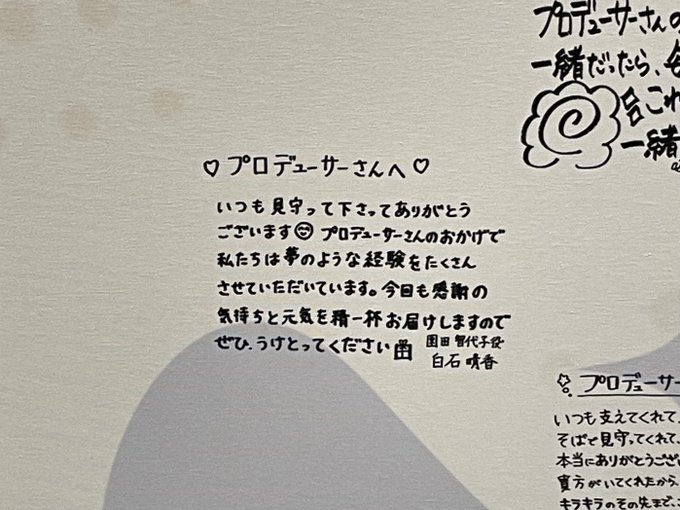 プロデューサーさんの
一緒だったら、
これ
一緒
♡プロデューサーさんへ♡
いつも見守って下さってありがとう
ございます😊 プロデューサーさんのおかげで
私たちは夢のような経験をたくさん
させていただいています。今日も感謝の
気持ちと元気を精一杯お届けしますので
ぜひ、うけとってください🎁
園田 智代子役
白石 晴香
☆。プロデューサー
いつも支えてくれて、
そばで見守ってくれて、
本当にありがとうござ
貴方がいてくれたから、
キラキラのその先まで、